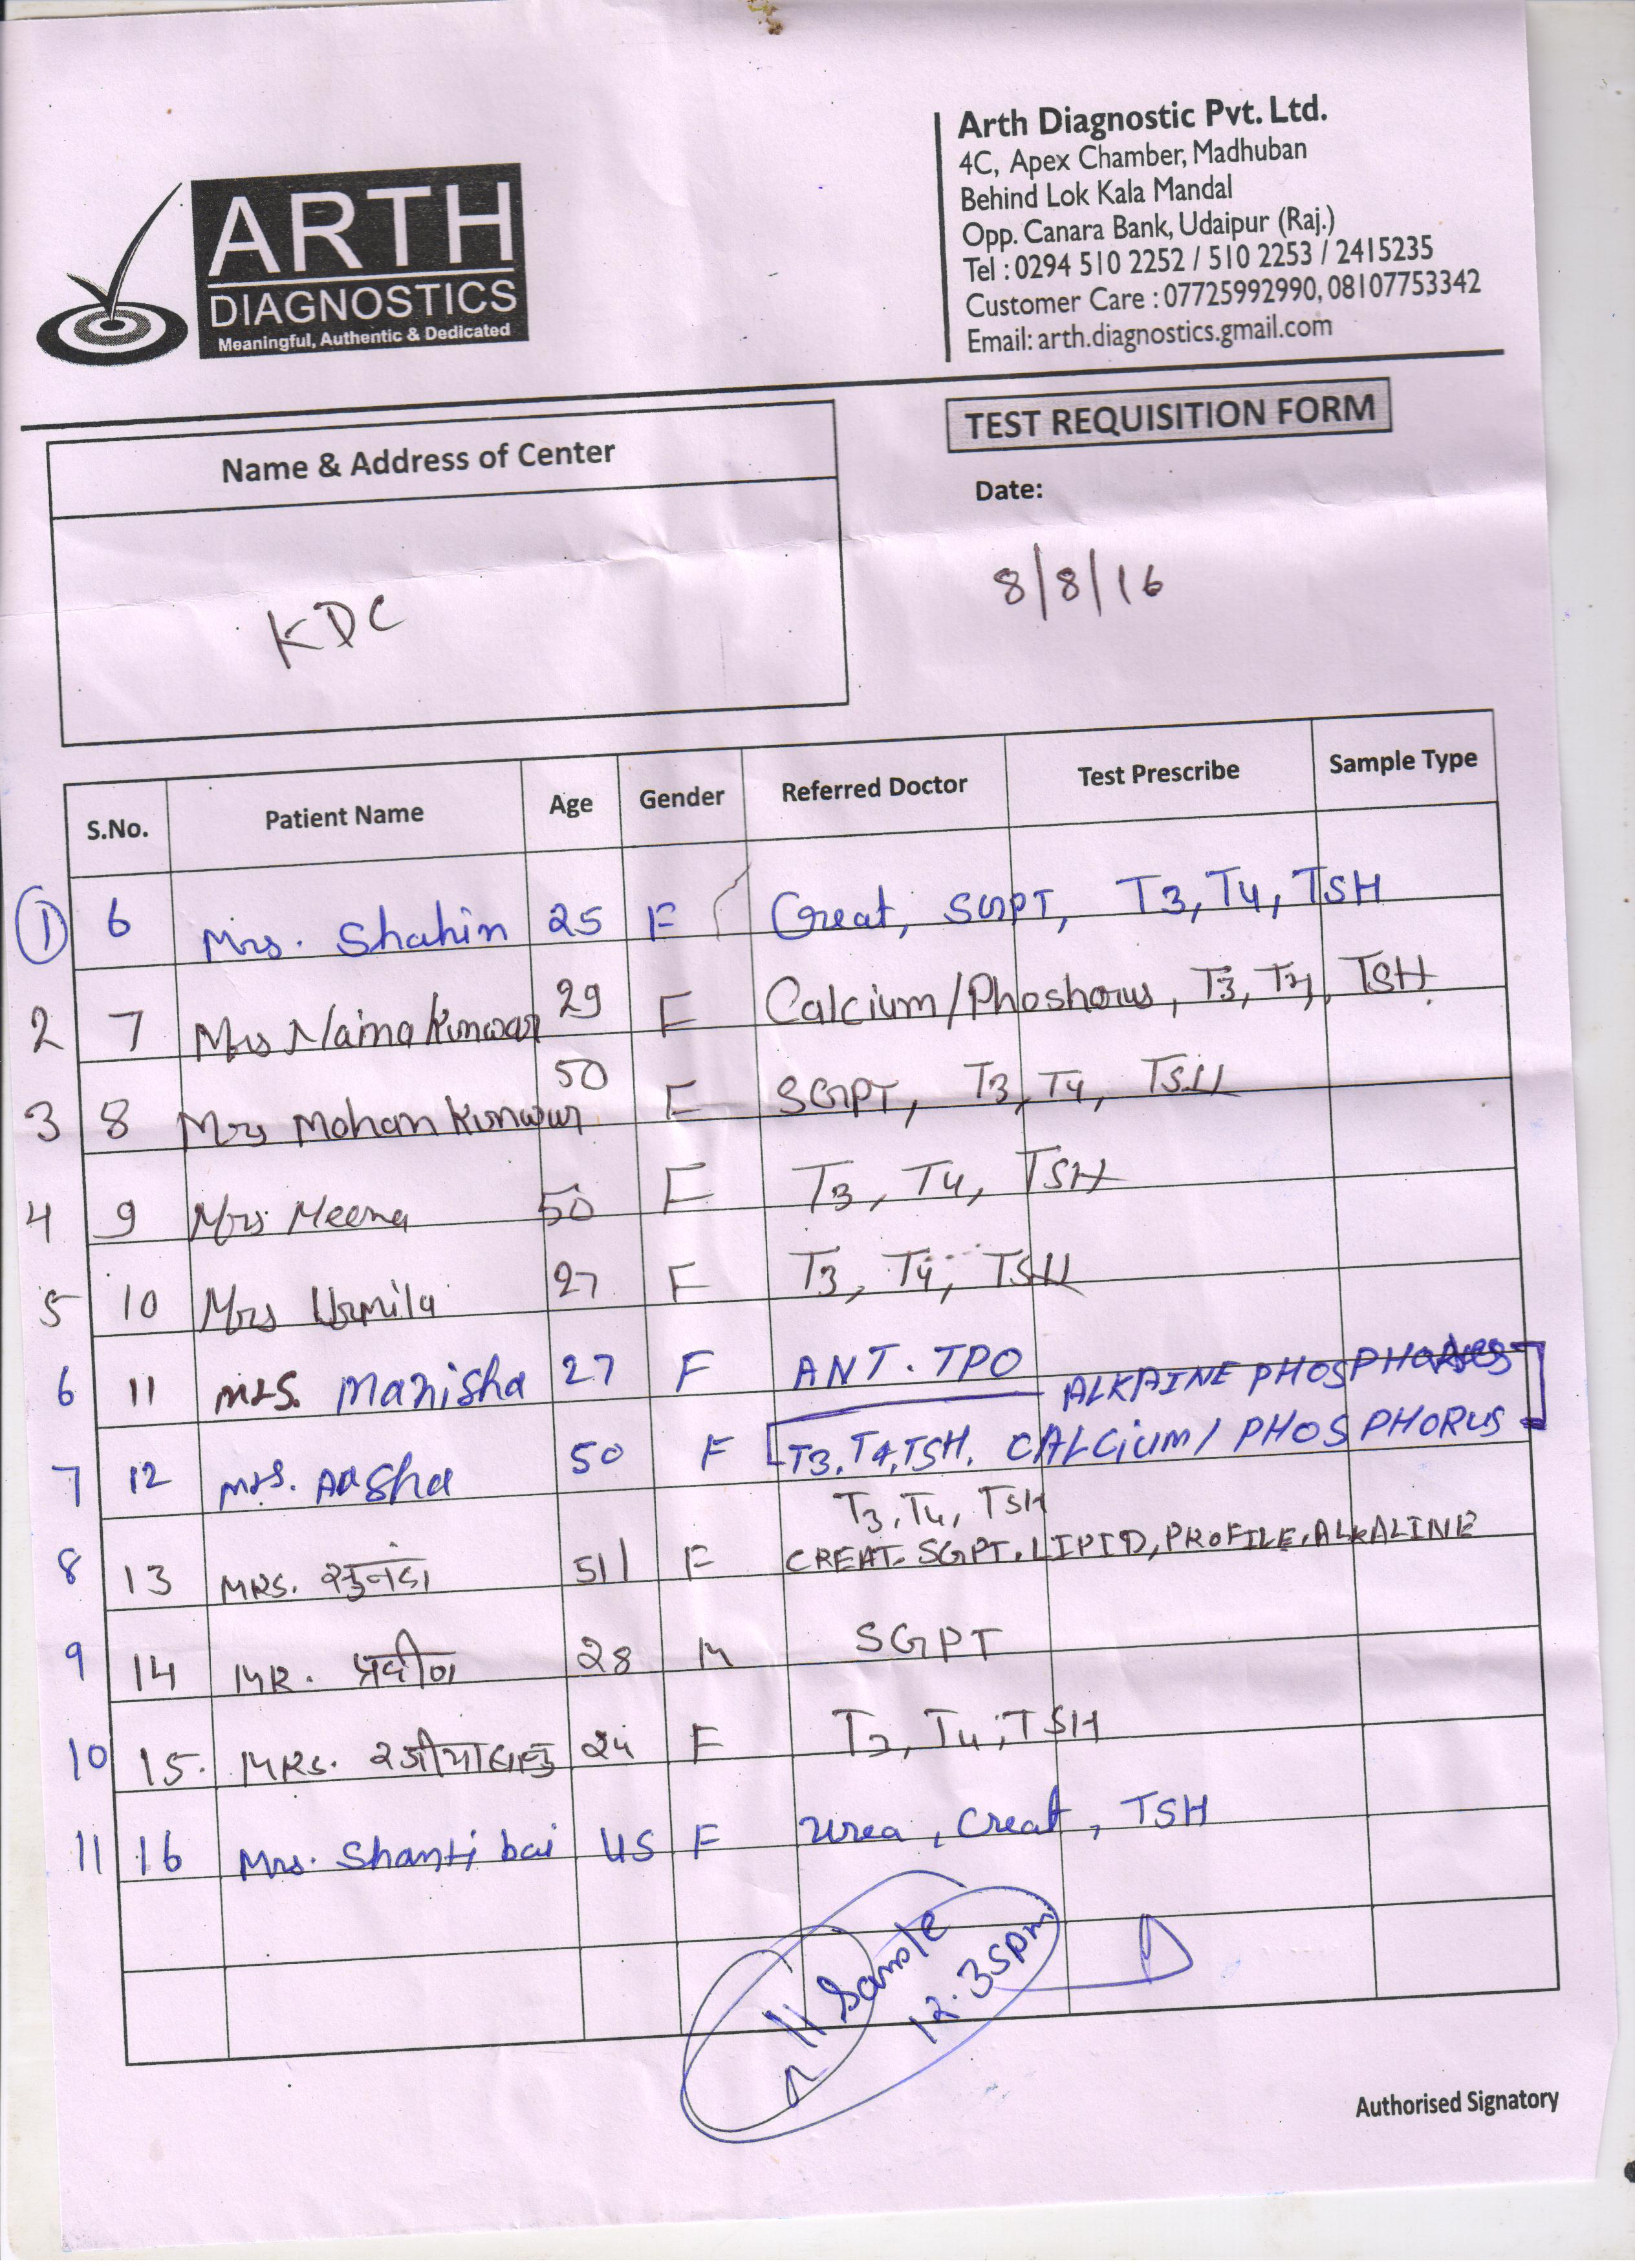 ARTH
DIAGNOSTICS
Meaningful, Authentic & Dedicated
Arth Diagnostic Pvt. Ltd.
4C, Apex Chamber, Madhuban
Behind Lok Kala Mandal
Opp. Canara Bank, Udaipur (Raj.)
Tel : 0294 510 2252 / 510 2253 / 2415235
Customer Care : 07725992990, 08107753342
Email: arth.diagnostics.gmail.com
TEST REQUISITION FORM
Name & Address of Center
Date:
KDC
8/8/16
S.No. Patient Name Age Gender Referred Doctor Test Prescribe Sample Type
1 6 Mrs. Shahin 25 F Creat, SGPT, T3, T4, TSH
2 7 Mrs Naina Kunwar 29 F Calcium/Phoshorus, T3, T4, TSH
3 8 Mrs Mohan Kunwar 50 F SGPT, T3, T4, TSH
4 9 Mrs Meena 50 F T3, T4, TSH
5 10 Mrs Urmila 27 F T3, T4, TSH
6 11 Mrs. Manisha 27 F ANT. TPO
ALKAINE PHOSPHORUS
7 12 Mrs. Aasha 50 F T3, T4, TSH. CALCIUM/ PHOSPHORUS
T3, T4, TSH
8 13 MRS. सुनंदा 51 F CREAT. SGPT. LIPID, PROFILE, ALKALINE
9 14 MR. प्रवीण 28 M SGPT
10 15. MRS. रजीयाबानु 24 F T3, T4, TSH
11 16 Mrs. Shanti bai 45 F Urea, Creat, TSH
11 Sample
12.35pm
Authorised Signatory